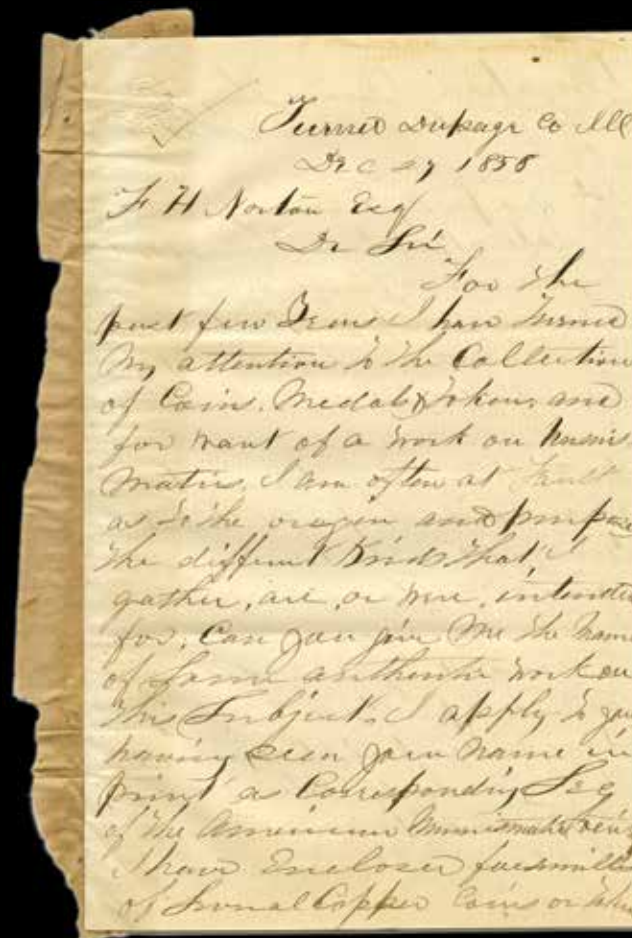 Turner Dupage Co Ill
Dec 27 1858
F H Norton Esq
Dr Sir
For the
past few Years I have turned
my attention to the Collection
of Coins, Medals & Tokens and
for want of a work on Numis
matics, I am often at fault
as to the oragin and purpose
the different Kinds that I
gather, are, or were, intended
for, Can you give Me the Name
of Some authentic work on
this Subject. I apply to you
having seen your Name in
print as Corresponding Sec
of the American Numismatic
I have Enclosed facsimilies
of Several Copper Coins or